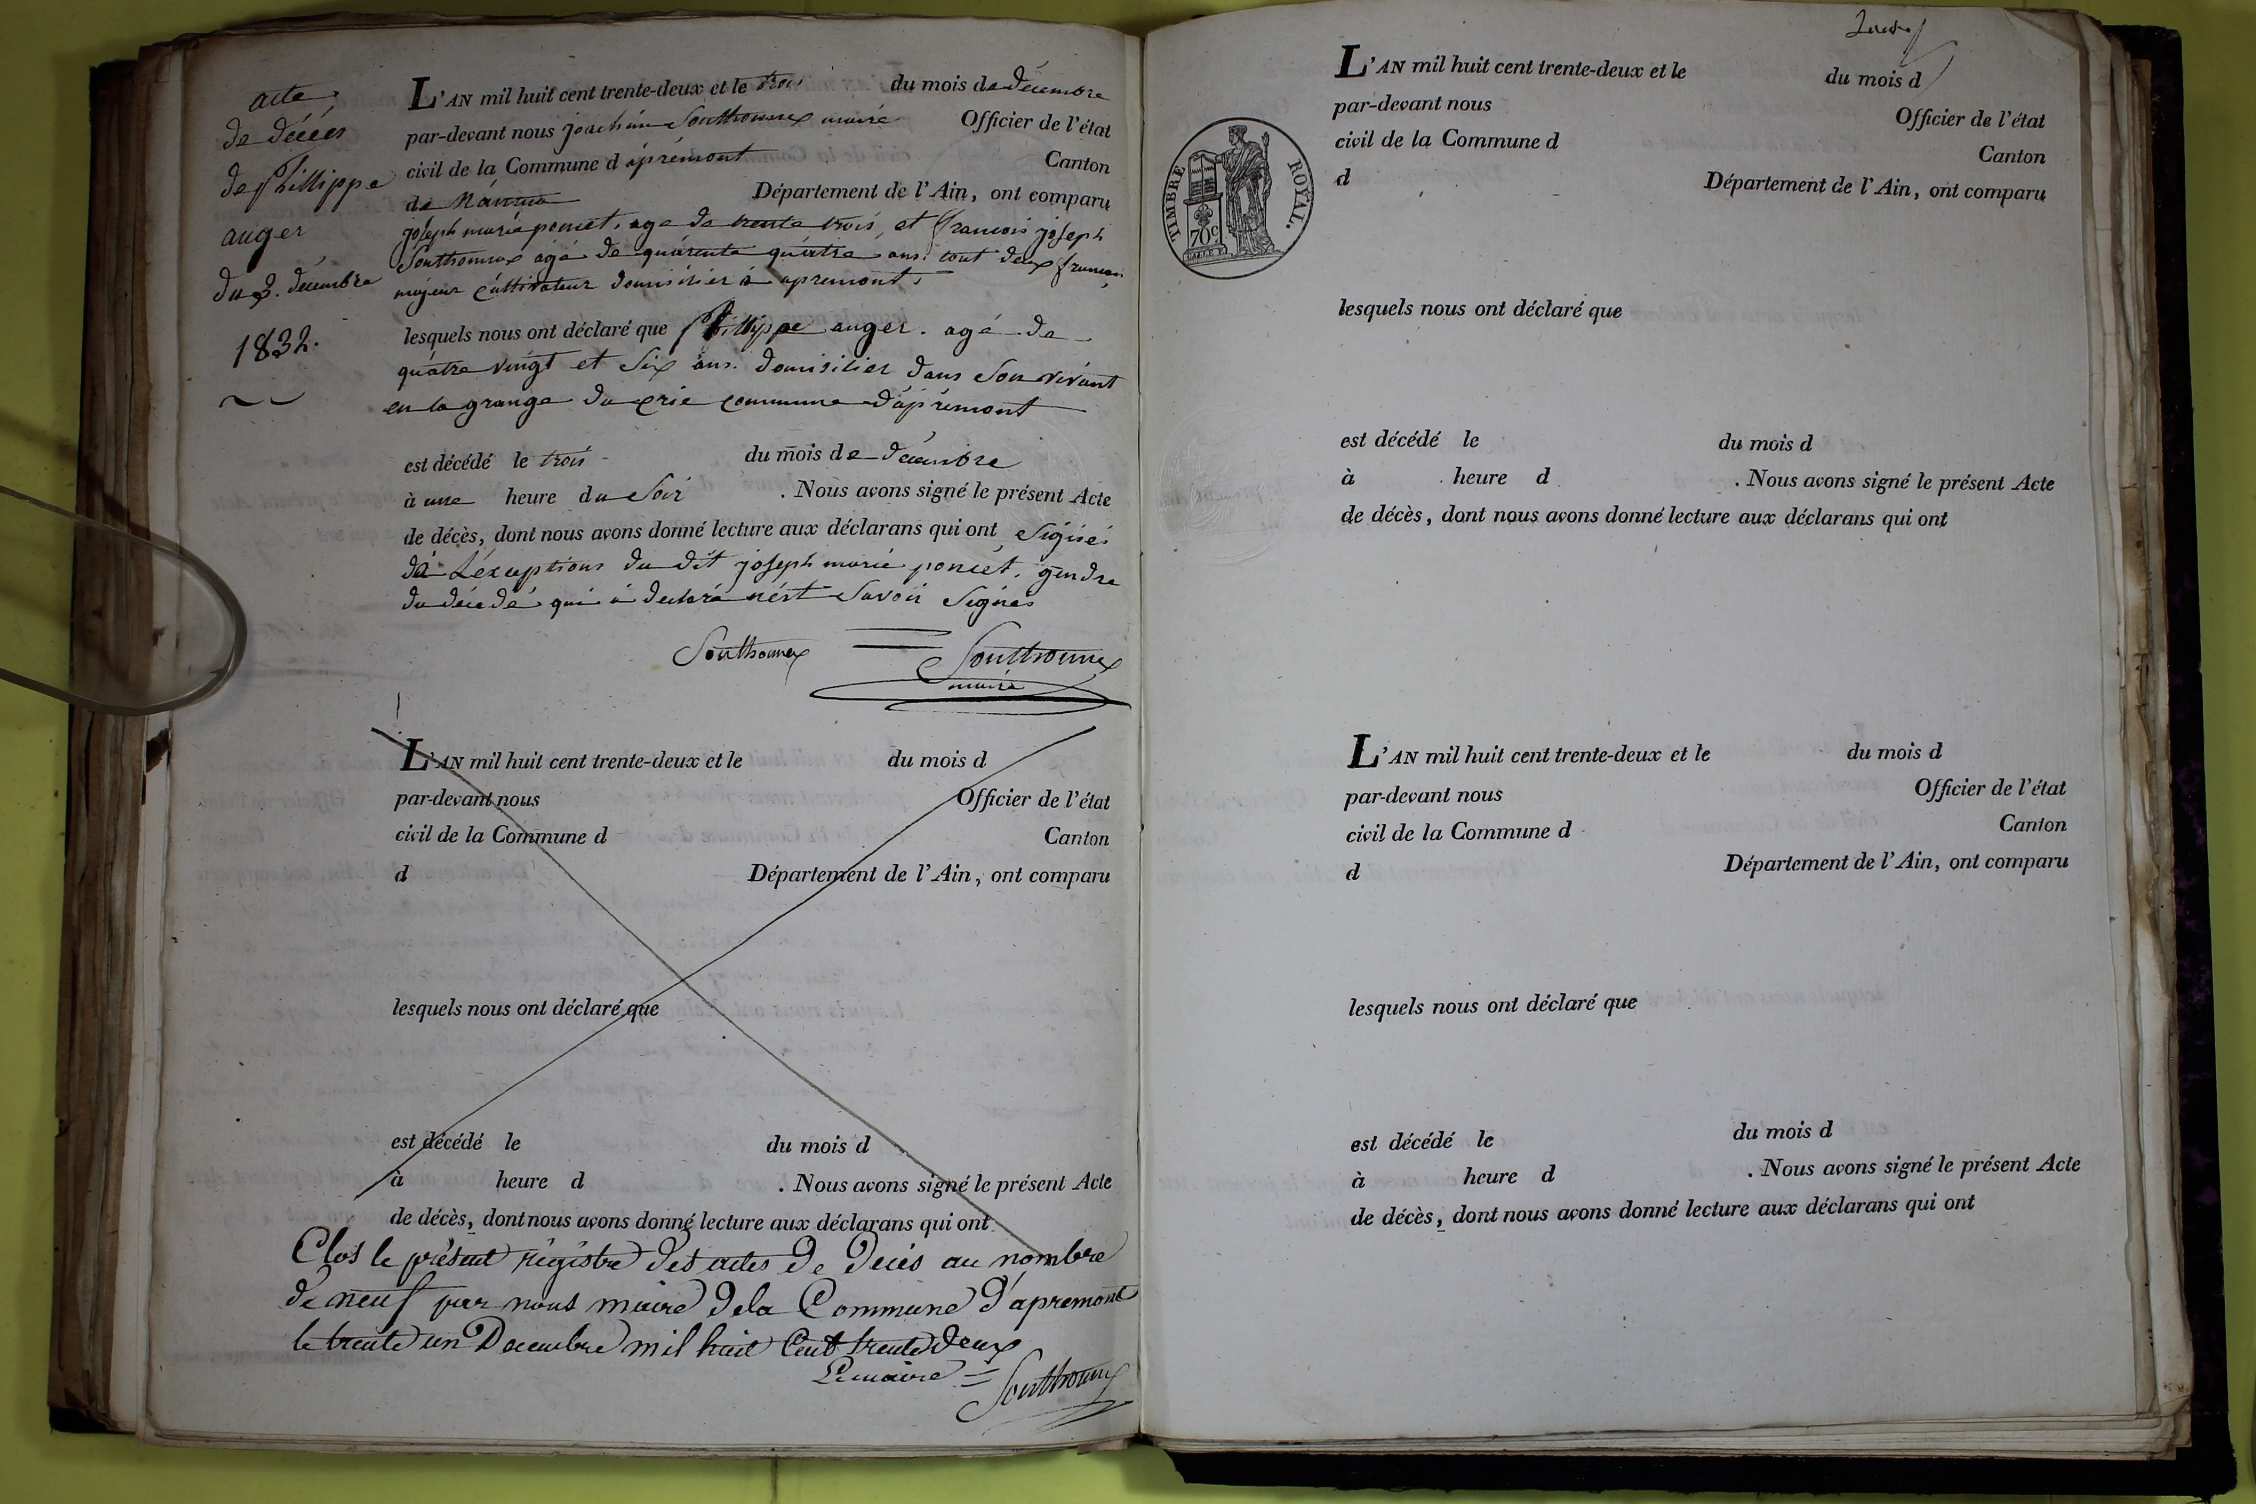 acte
de décés
de phillippe
auger
du 3. décembre
1832.
L'AN mil huit cent trente-deux et le trois du mois de décembre
par-devant nous joachim Southonnex maire Officier de l'état
civil de la Commune d aprémont Canton
de Nantua Département de l'Ain, ont comparu
joseph marie poncet, age de trente trois, et francois joseph
Southonnex agé de quarente quatre ans. tout deux francais
majeur cultivateur domisilier à apremont,
lesquels nous ont déclaré que phillippe auger. agé de
quatre vingt et six ans. domisilier dans Son vivant
en la grange du crie commune d'aprémont
est décédé le trois du mois de décembre
à une heure du Soir . Nous avons signé le présent Acte
de décès, dont nous avons donné lecture aux déclarans qui ont Signés
à L'exceptions du dit joseph marie poncet, gendre
du décedé qui à declaré Savoir Signer
Southonnex Southonnex
maire
L'AN mil huit cent trente-deux et le du mois d
par-devant nous Officier de l'état
civil de la Commune d Canton
d Département de l'Ain, ont comparu
lesquels nous ont déclaré que
est décédé le du mois d
à heure d . Nous avons signé le présent Acte
de décès, dont nous avons donné lecture aux déclarans qui ont
Clos le présent régistre des actes de décés au nombre
de neuf par nous maire dela Commune d'apremont
le trente un Decembre mil huit Cent trente deux
Le maire = Southonnex
L'AN mil huit cent trente-deux et le du mois d
par-devant nous Officier de l'état
civil de la Commune d Canton
d Département de l'Ain, ont comparu
TIMBRE ROYAL.
70c
lesquels nous ont déclaré que
est décédé le du mois d
à heure d . Nous avons signé le présent Acte
de décès, dont nous avons donné lecture aux déclarans qui ont
L'AN mil huit cent trente-deux et le du mois d
par-devant nous Officier de l'état
civil de la Commune d Canton
d Département de l'Ain, ont comparu
lesquels nous ont déclaré que
est décédé le du mois d
à heure d . Nous avons signé le présent Acte
de décès, dont nous avons donné lecture aux déclarans qui ont